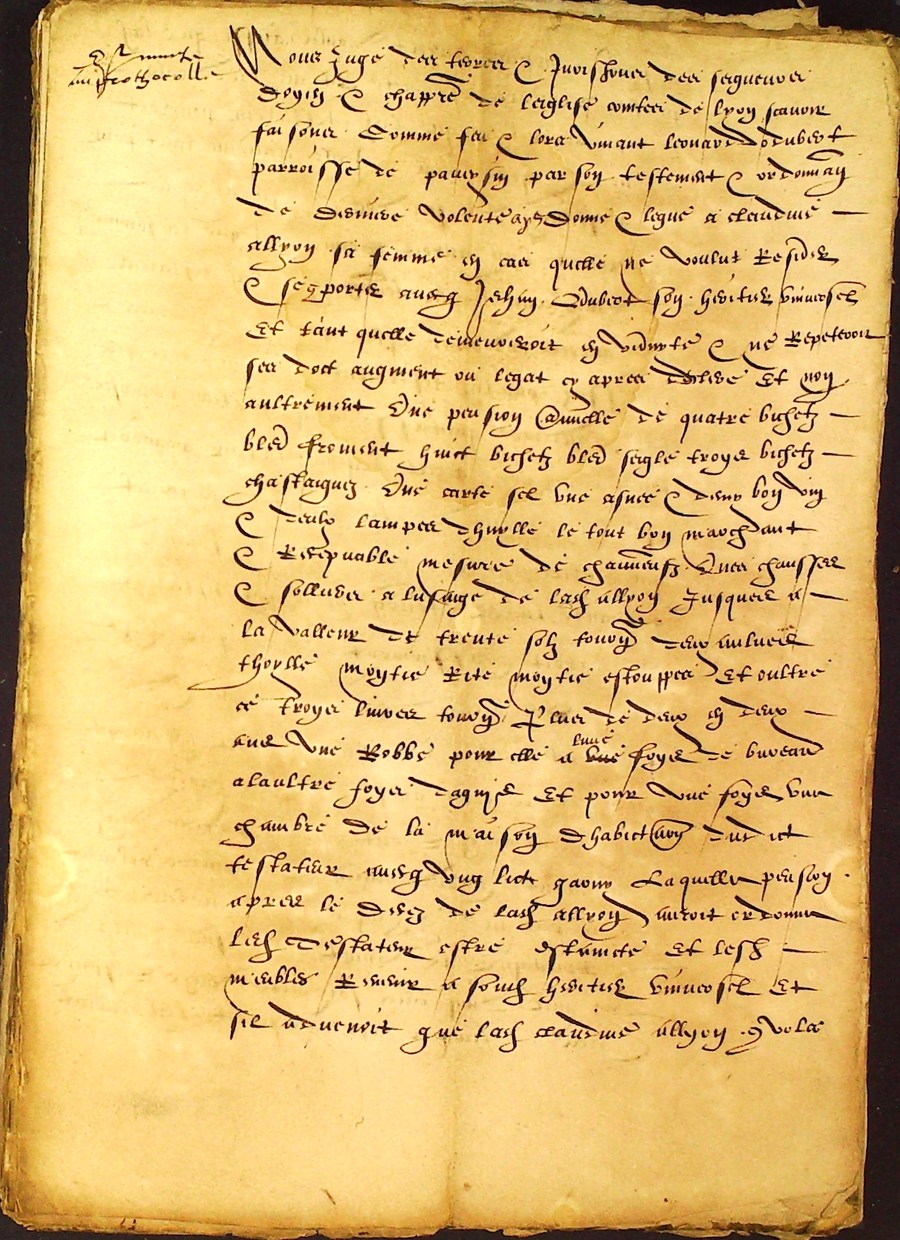 prothocolle
Nous Juge des terres & Jurisdicon des seigneurs
doyen & chappre de leglise comtes de lyon scavoir
faisons Comme feu & lors vivant leonard odubert
parroisse de par son testement & ordonnan
de derniere volente ayt donne & legue a claudine
allyon sa femme en cas quelle ne voulut Resider
& se porter avecq Jehan odubert son heritier universel
Et tant quelle demeureroit en viduyte & ne Repeteroit
ses doct augment ou legat cy apres Et non
aultrement Une pension annuelle de quatre bichetz
bled froment huict bichetz bled seigle troys bichetz
chastaignes Une carte sel une asnee & demy bon vin
& deulx lampes dhuylle le tout bon marchant
& Recepvable mesure de Unes chausses
& solliers a lusaige de lad allyon Jusques a
la valleur de trente solz tournoys deux aulnes
thoylle moytie Rite moytie estouppes Et oultre
ce troys livres tourn Plus de deux en deux
ans une Robbe pour elle a lune foys de bureau
a laultre foys Et pour une foys une
chambre de la maison dhabictaon dudict
testateur avecq ung lict garny Laquelle pension
apres le decez de lad allyon auroit ordonne
led Testateur estre estaincte Et lesd
meubles Revenir a sond heritier universel Et
sil advenoit que lad claudine allyon convolast